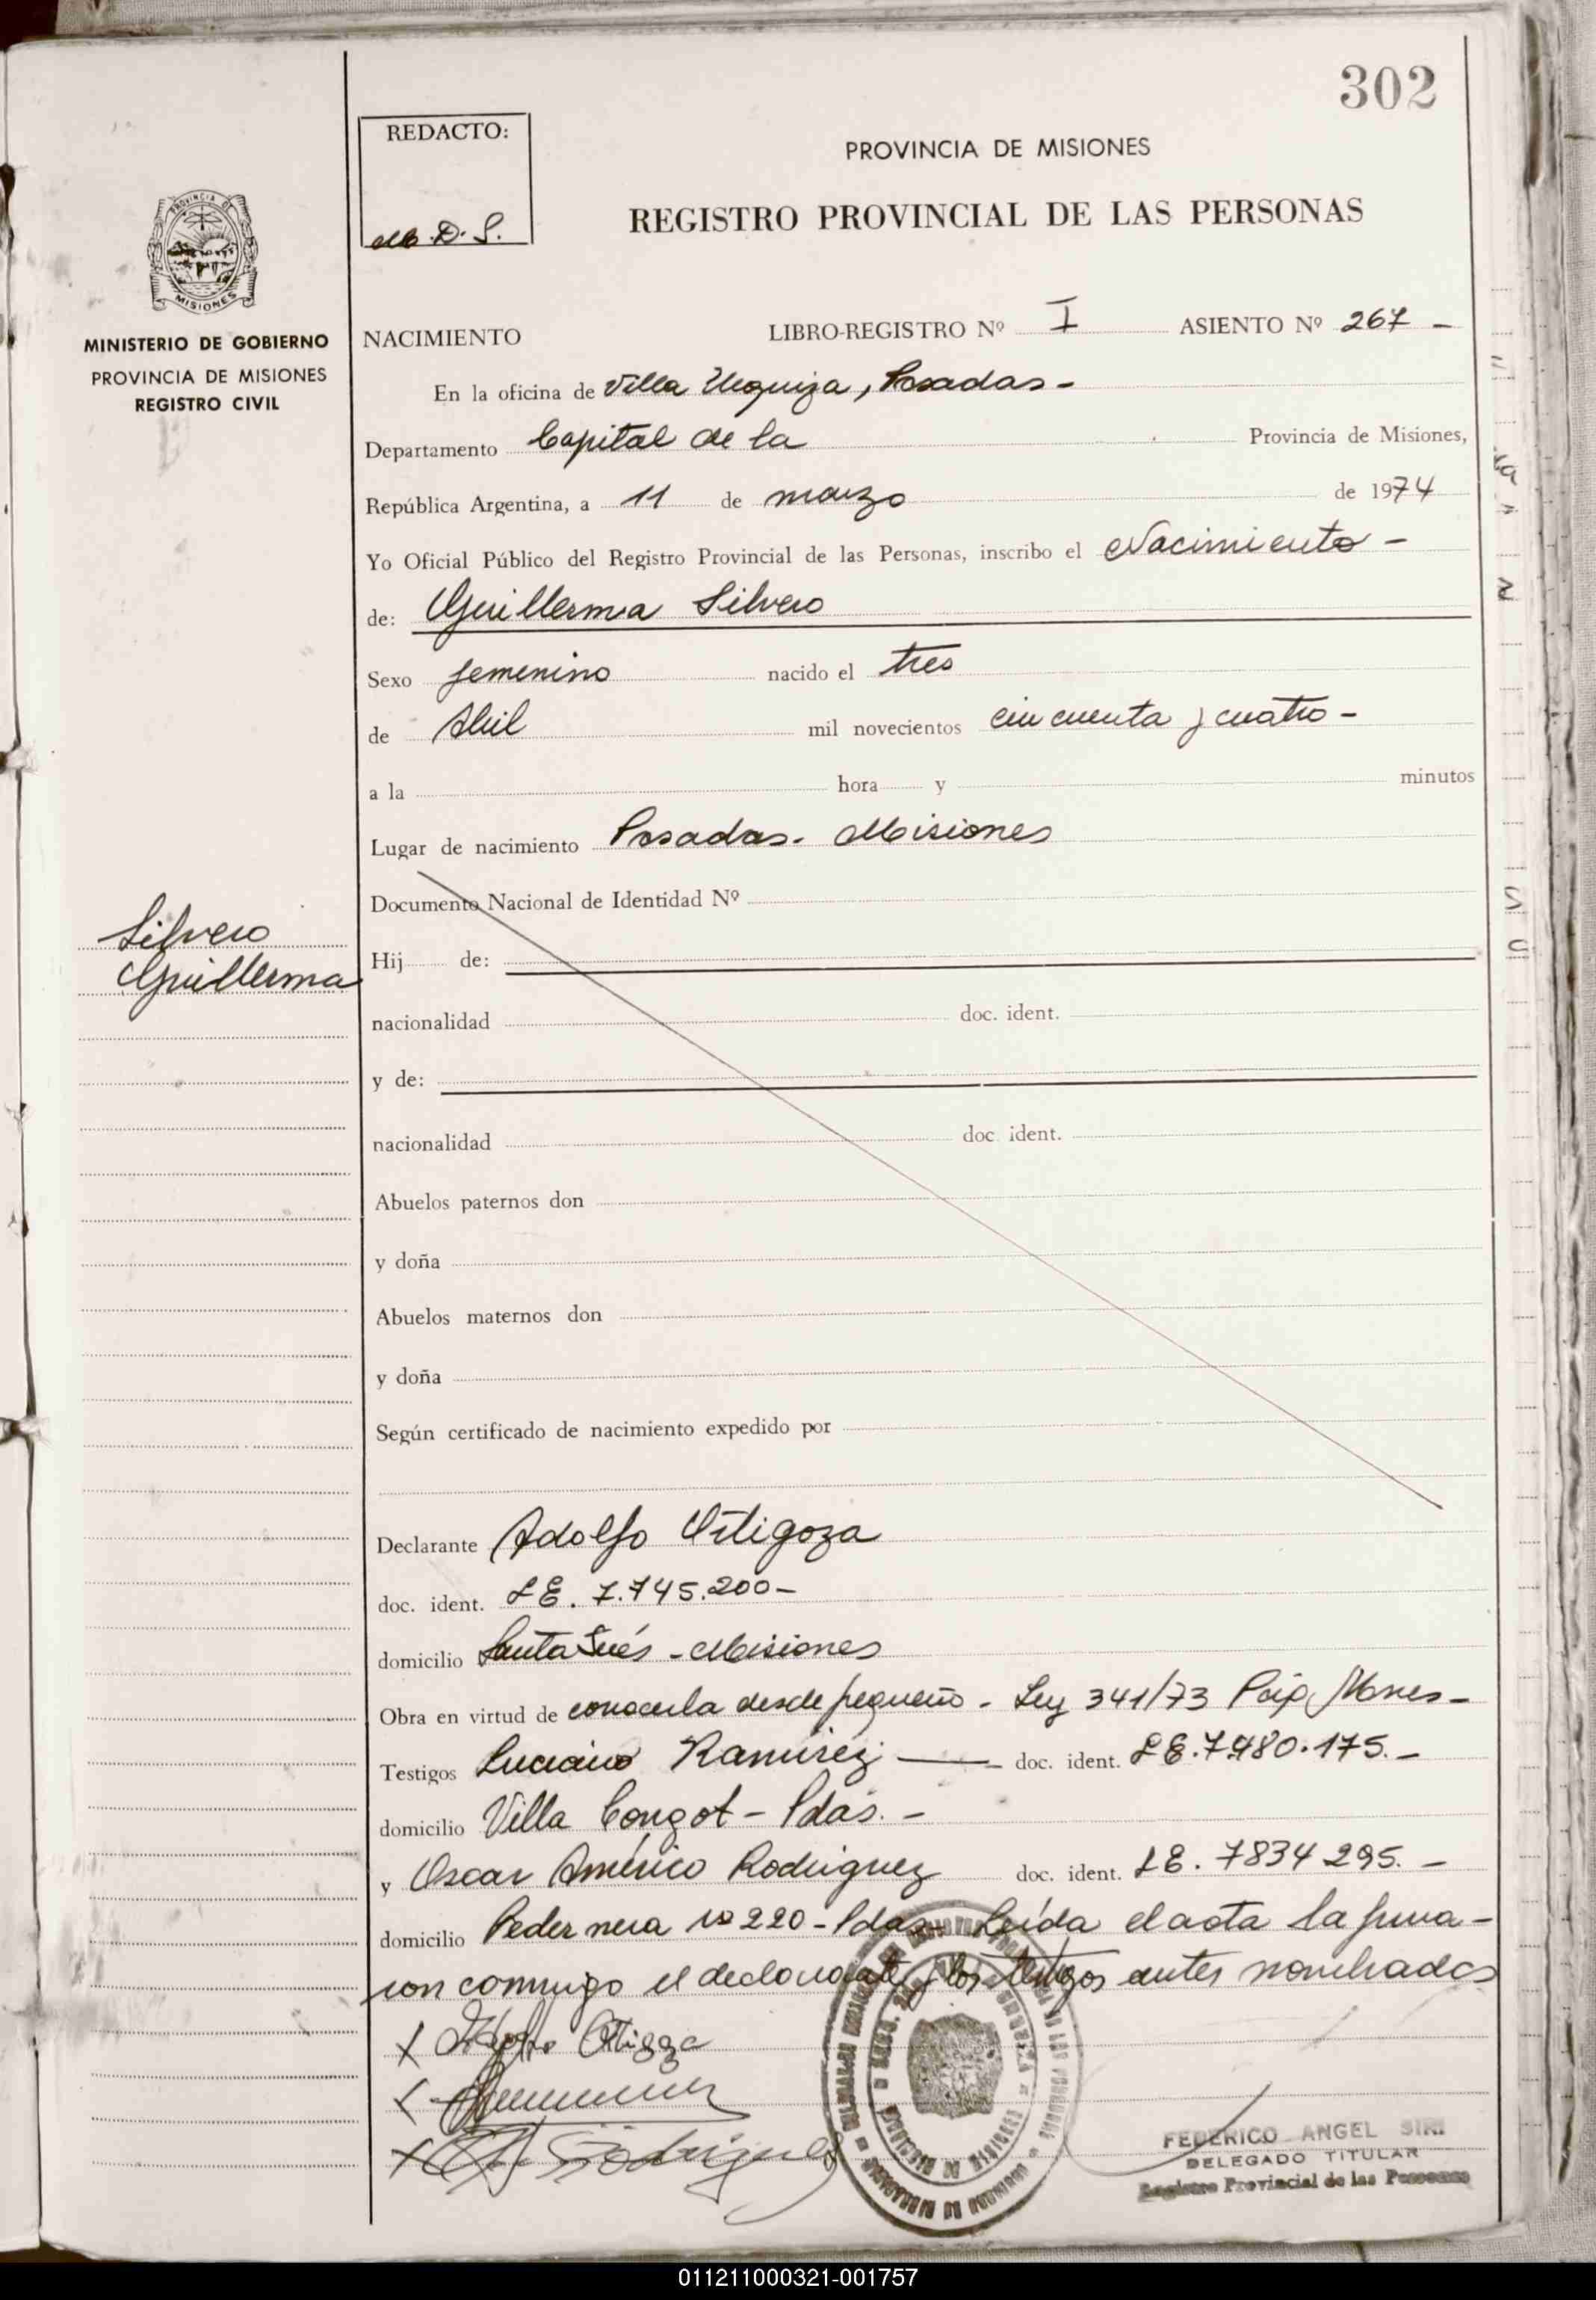 302
REDACTO:
M.D.S.
PROVINCIA DE MISIONES
REGISTRO PROVINCIAL DE LAS PERSONAS
PROVINCIA DE
MISIONES
MINISTERIO DE GOBIERNO
PROVINCIA DE MISIONES
REGISTRO CIVIL
NACIMIENTO LIBRO-REGISTRO Nº I ASIENTO Nº 267 -
En la oficina de Villa Urquiza, Posadas -
Departamento Capital de la Provincia de Misiones,
República Argentina, a 11 de marzo de 1974
Yo Oficial Público del Registro Provincial de las Personas, inscribo el Nacimiento -
de: Guillerma Silvero
Sexo femenino nacido el tres
de Abril mil novecientos cincuenta y cuatro -
a la hora y minutos
Lugar de nacimiento Posadas - Misiones
Documento Nacional de Identidad Nº
Silvero
Guillerma
Hij de:
nacionalidad doc. ident.
y de:
nacionalidad doc. ident.
Abuelos paternos don
y doña
Abuelos maternos don
y doña
Según certificado de nacimiento expedido por
Declarante Adolfo Ortigoza
doc. ident. L E. 7.745.200 -
domicilio Santa Inés - Misiones
Obra en virtud de conocerla desde pequeño - Ley 341/73
Testigos Luciano Ramírez - doc. ident. L E. 7480.175. -
domicilio Villa Congot - Pdas. -
y Oscar Américo Rodriguez doc. ident. L E. 7834295. -
domicilio Pedernera nº 220 - Pdas - Leída el acta la firma -
ron conmigo el declarante y los testigos antes nombrados
FEDERICO ANGEL SIRI
DELEGADO TITULAR
Registro Provincial de las Personas
011211000321-001757